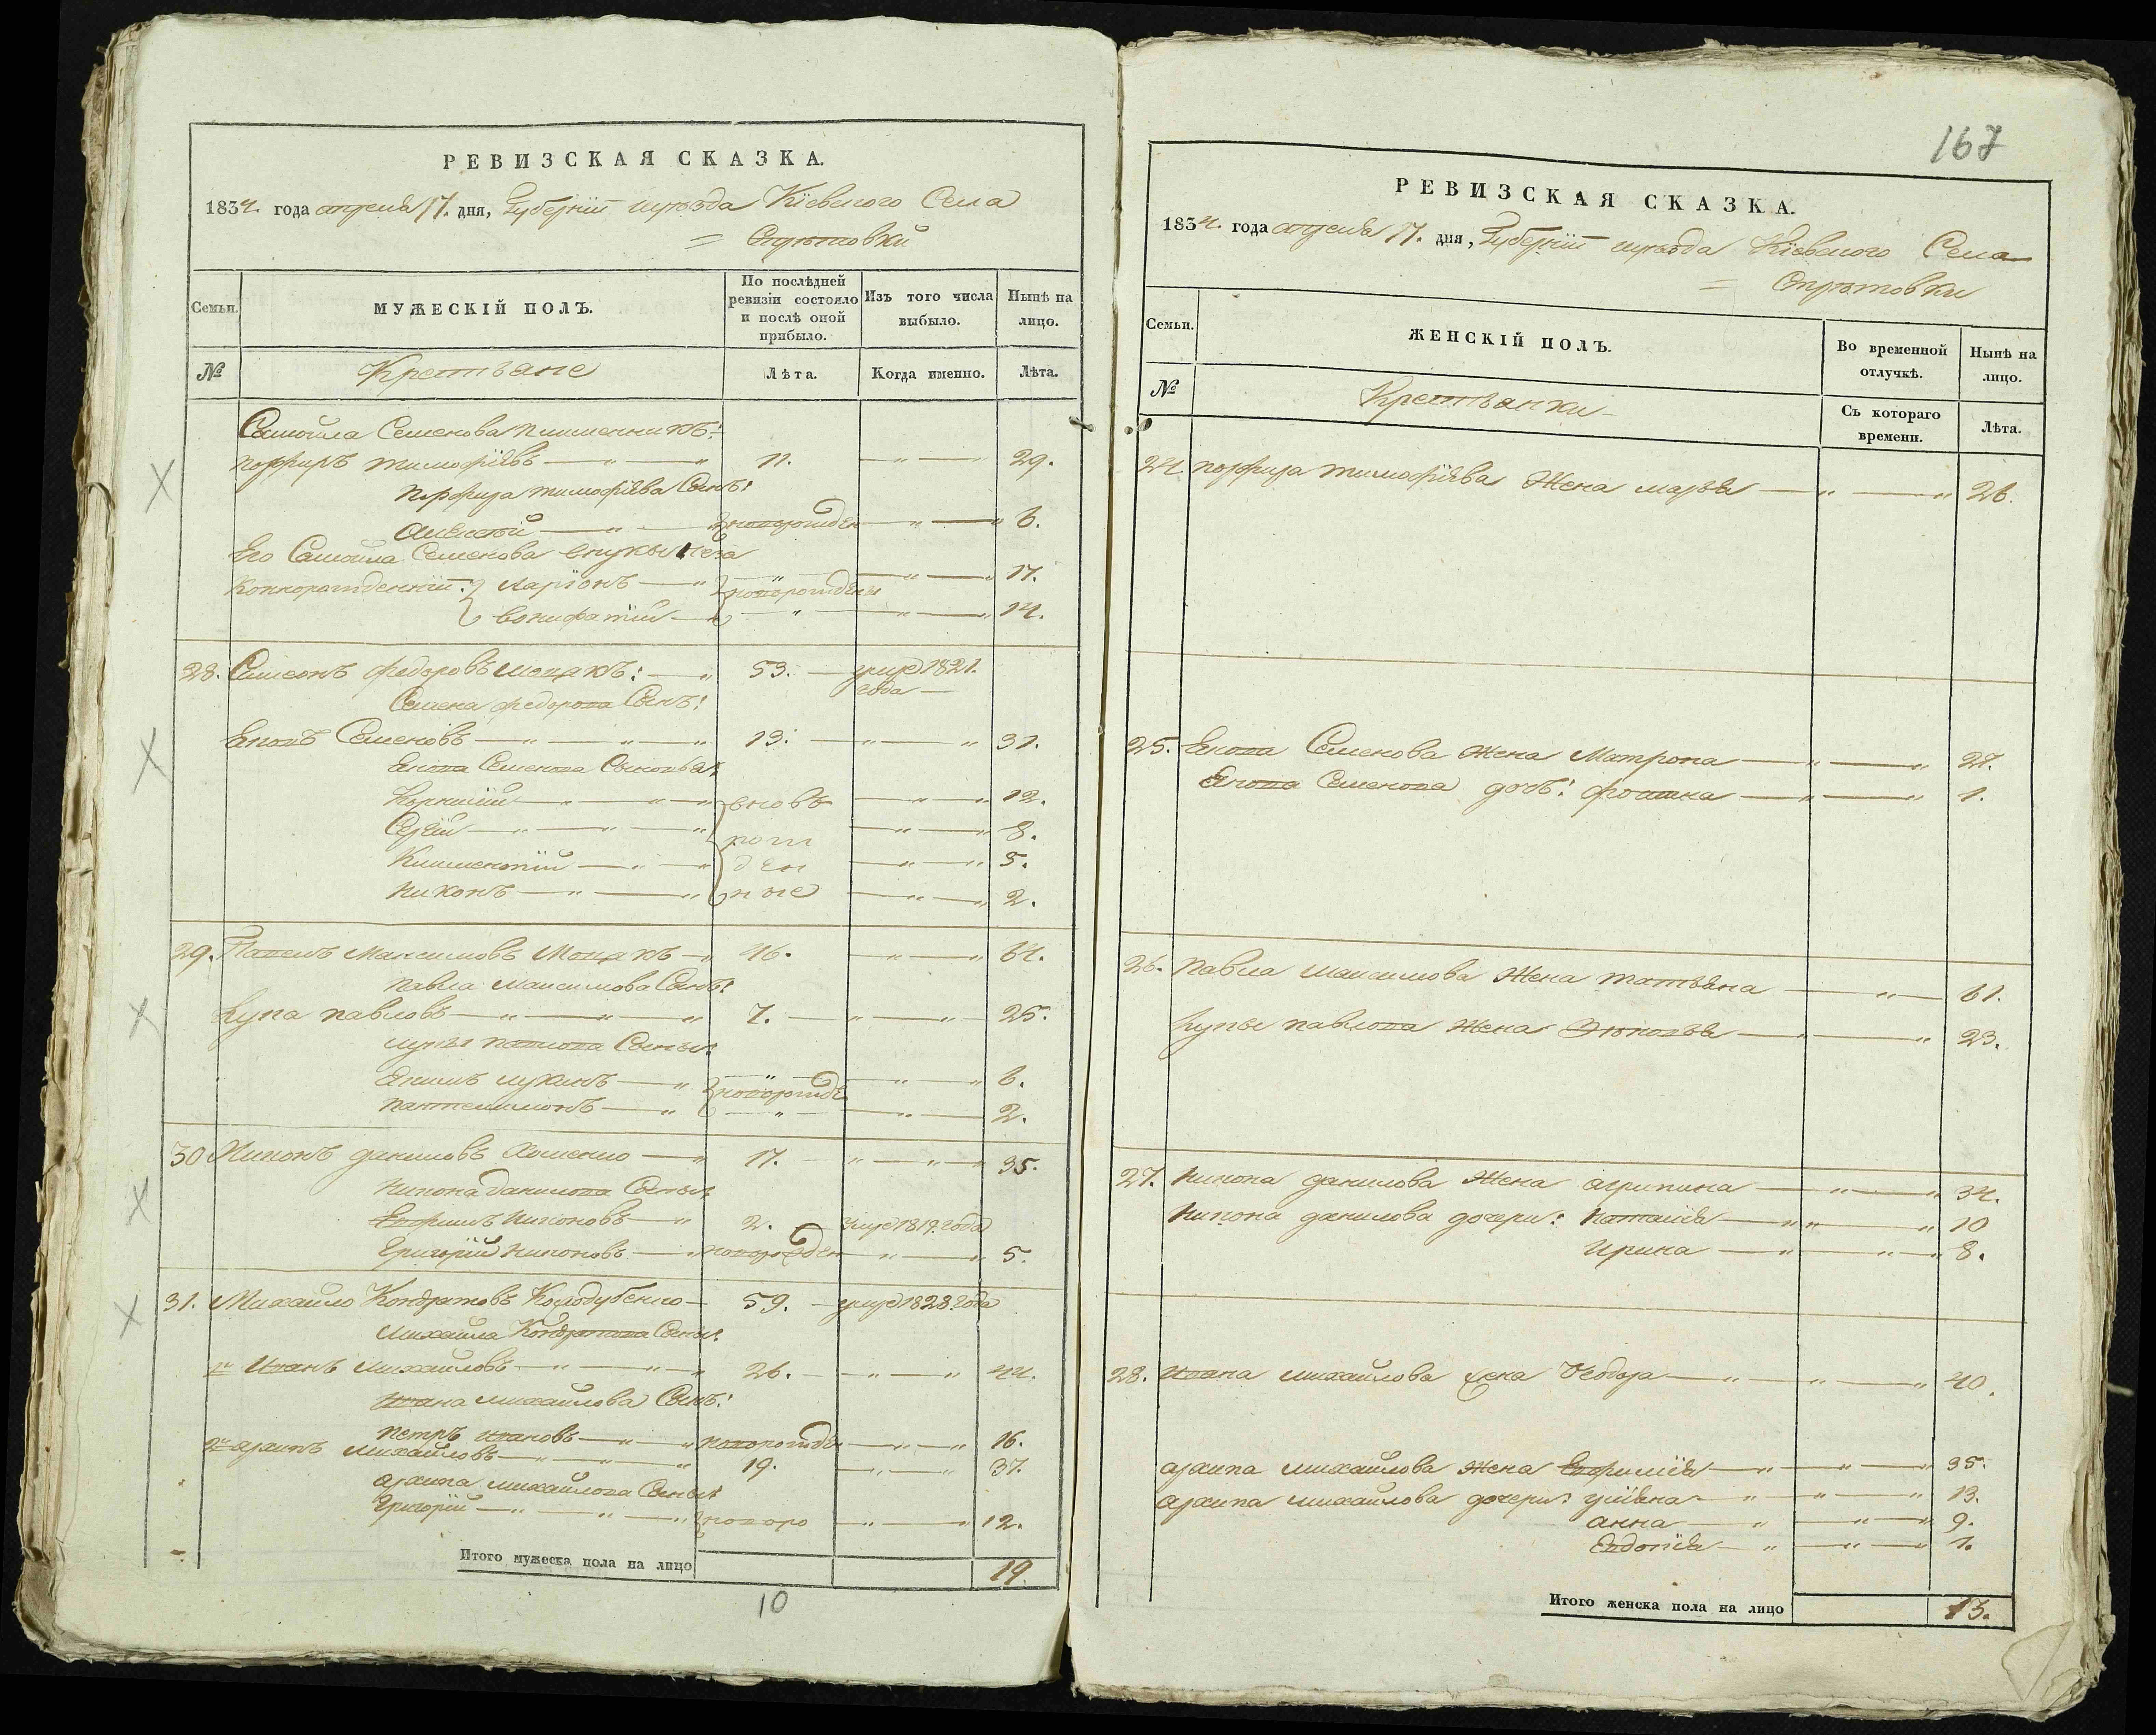 РЕВИЗСКАЯ СКАЗКА.
1834. года апреля 17. дня, Губернiи и уезда Кiевского Села
= Стретовки
Семьи.
МУЖЕСКIЙ ПОЛЪ.
По послѣдней ревизiи состояло и послѣ оной прибыло.
Изъ того числа выбыло.
Нынѣ на лицо.
№
Крестьяне
Лѣта.
Когда именно.
Лѣта.
Самойла Семенова племенникъ:
порфиръ тимофѣевъ 11. 29.
порфира тимофѣева Сынъ:
Алексѣй новорожден 6.
Его Самойла Семенова внуки
Ларiонъ новорождены 17.
вонифатiй 14.
28. Симеонъ федоровъ 53. умре 1821. года
Семена федорова Сынъ:
Семеновъ 13. 31.
Семенова Сыновья:
Корнилiй вновь 12.
Сергiй рож 8.
Климентiй ден 5.
Никонъ ные 2.
29. Павелъ Максимовъ 46. 64.
павла максимова Сынъ:
Лука павловъ 7. 25.
луки павлова Сыны:
лукинъ новорожде 6.
пантелимонъ 2.
30 Никонъ даниловъ Хоменко 17. 35.
Никона данилова Сыны:
Ефримъ Никоновъ 2. умре 1817. года
Григорiй Никоновъ новорожден 5.
31. Михайло Кондратовъ Колодубенко 59. умре 1828. года
Михайла Кондратова Сыны:
1й Иванъ михайловъ 26. 44.
Ивана михайлова Сынъ:
петръ ивановъ новорожде 16.
2й архипъ михайловъ 19. 37.
архипа михайлова Сыны:
Григорiй новоро 12.
Итого мужеска пола на лицо 19
10
167
РЕВИЗСКАЯ СКАЗКА.
1834. года апреля 17. дня, Губернiи и уезда Кiевского Села
= Стретовки
Семьи.
ЖЕНСКIЙ ПОЛЪ.
Во временной отлучкѣ.
Нынѣ на лицо.
№
Крестьянки
Съ котораго времени.
Лѣта.
24. порфира тимофѣева Жена марья 26.
25. Семенова жена Матрона 27.
Семенова дочь: 1.
26. Павла максимова Жена татьяна 61.
Луки павлова жена 23.
27. Никона данилова Жена агрипина 34.
Никона данилова дочери: Наталiя 10
Ирина 8.
28. Ивана михайлова жена Феодора 40.
архипа михайлова жена Ефримiя 35.
архипа михайлова дочери: улiяна 13.
анна 9.
Евдокiя 1.
Итого женска пола на лицо 13.